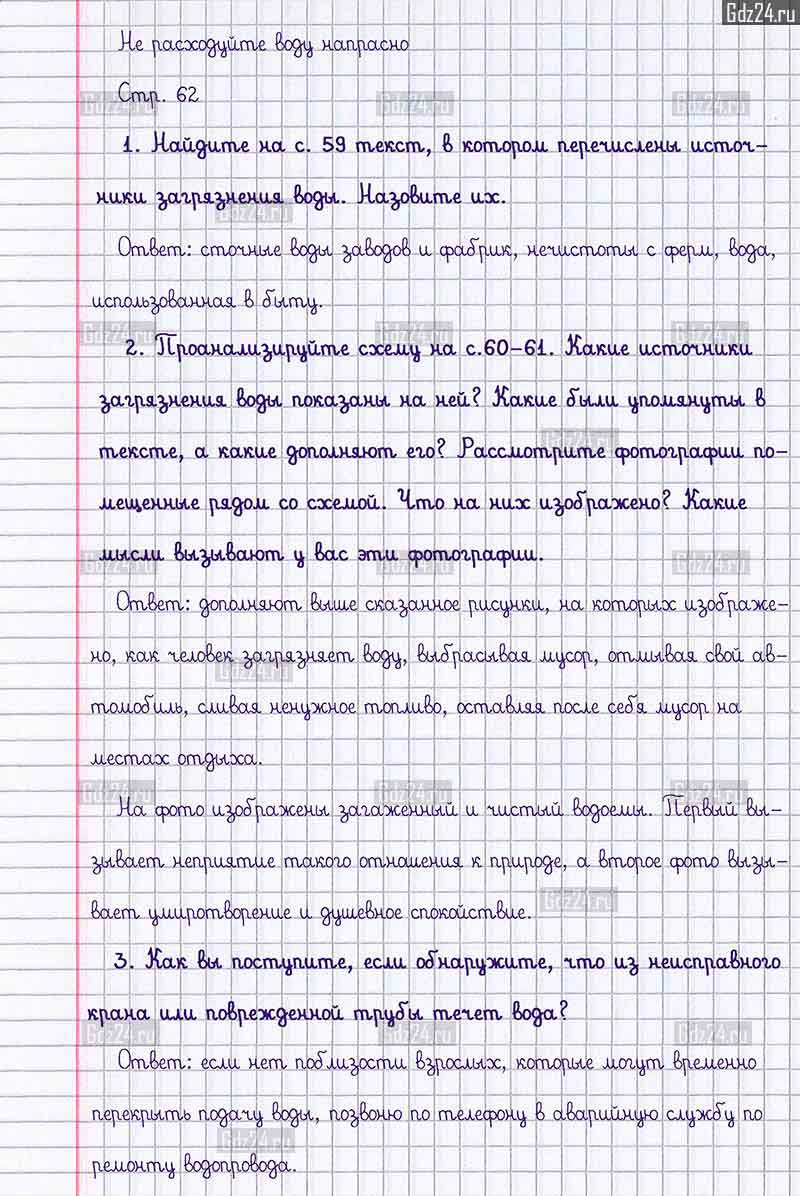 Gdz24.ru
Не расходуйте воду напрасно
Стр. 62
1. Найдите на с. 59 текст, в котором перечислены источ-
ники загрязнения воды. Назовите их.
Ответ: сточные воды заводов и фабрик, нечистоты с ферм, вода,
использованная в быту.
2. Проанализируйте схему на с.60-61. Какие источники
загрязнения воды показаны на ней? Какие были упомянуты в
тексте, а какие дополняют его? Рассмотрите фотографии по-
мещенные рядом со схемой. Что на них изображено? Какие
мысли вызывают у вас эти фотографии.
Ответ: дополняют выше сказанное рисунки, на которых изображе-
но, как человек загрязняет воду, выбрасывая мусор, отмывая свой ав-
томобиль, сливая ненужное топливо, оставляя после себя мусор на
местах отдыха.
На фото изображены загаженный и чистый водоемы. Первый вы-
зывает неприятие такого отношения к природе, а второе фото вызы-
вает умиротворение и душевное спокойствие.
3. Как вы поступите, если обнаружите, что из неисправного
крана или поврежденной трубы течет вода?
Ответ: если нет поблизости взрослых, которые могут временно
перекрыть подачу воды, позвоню по телефону в аварийную службу по
ремонту водопровода.